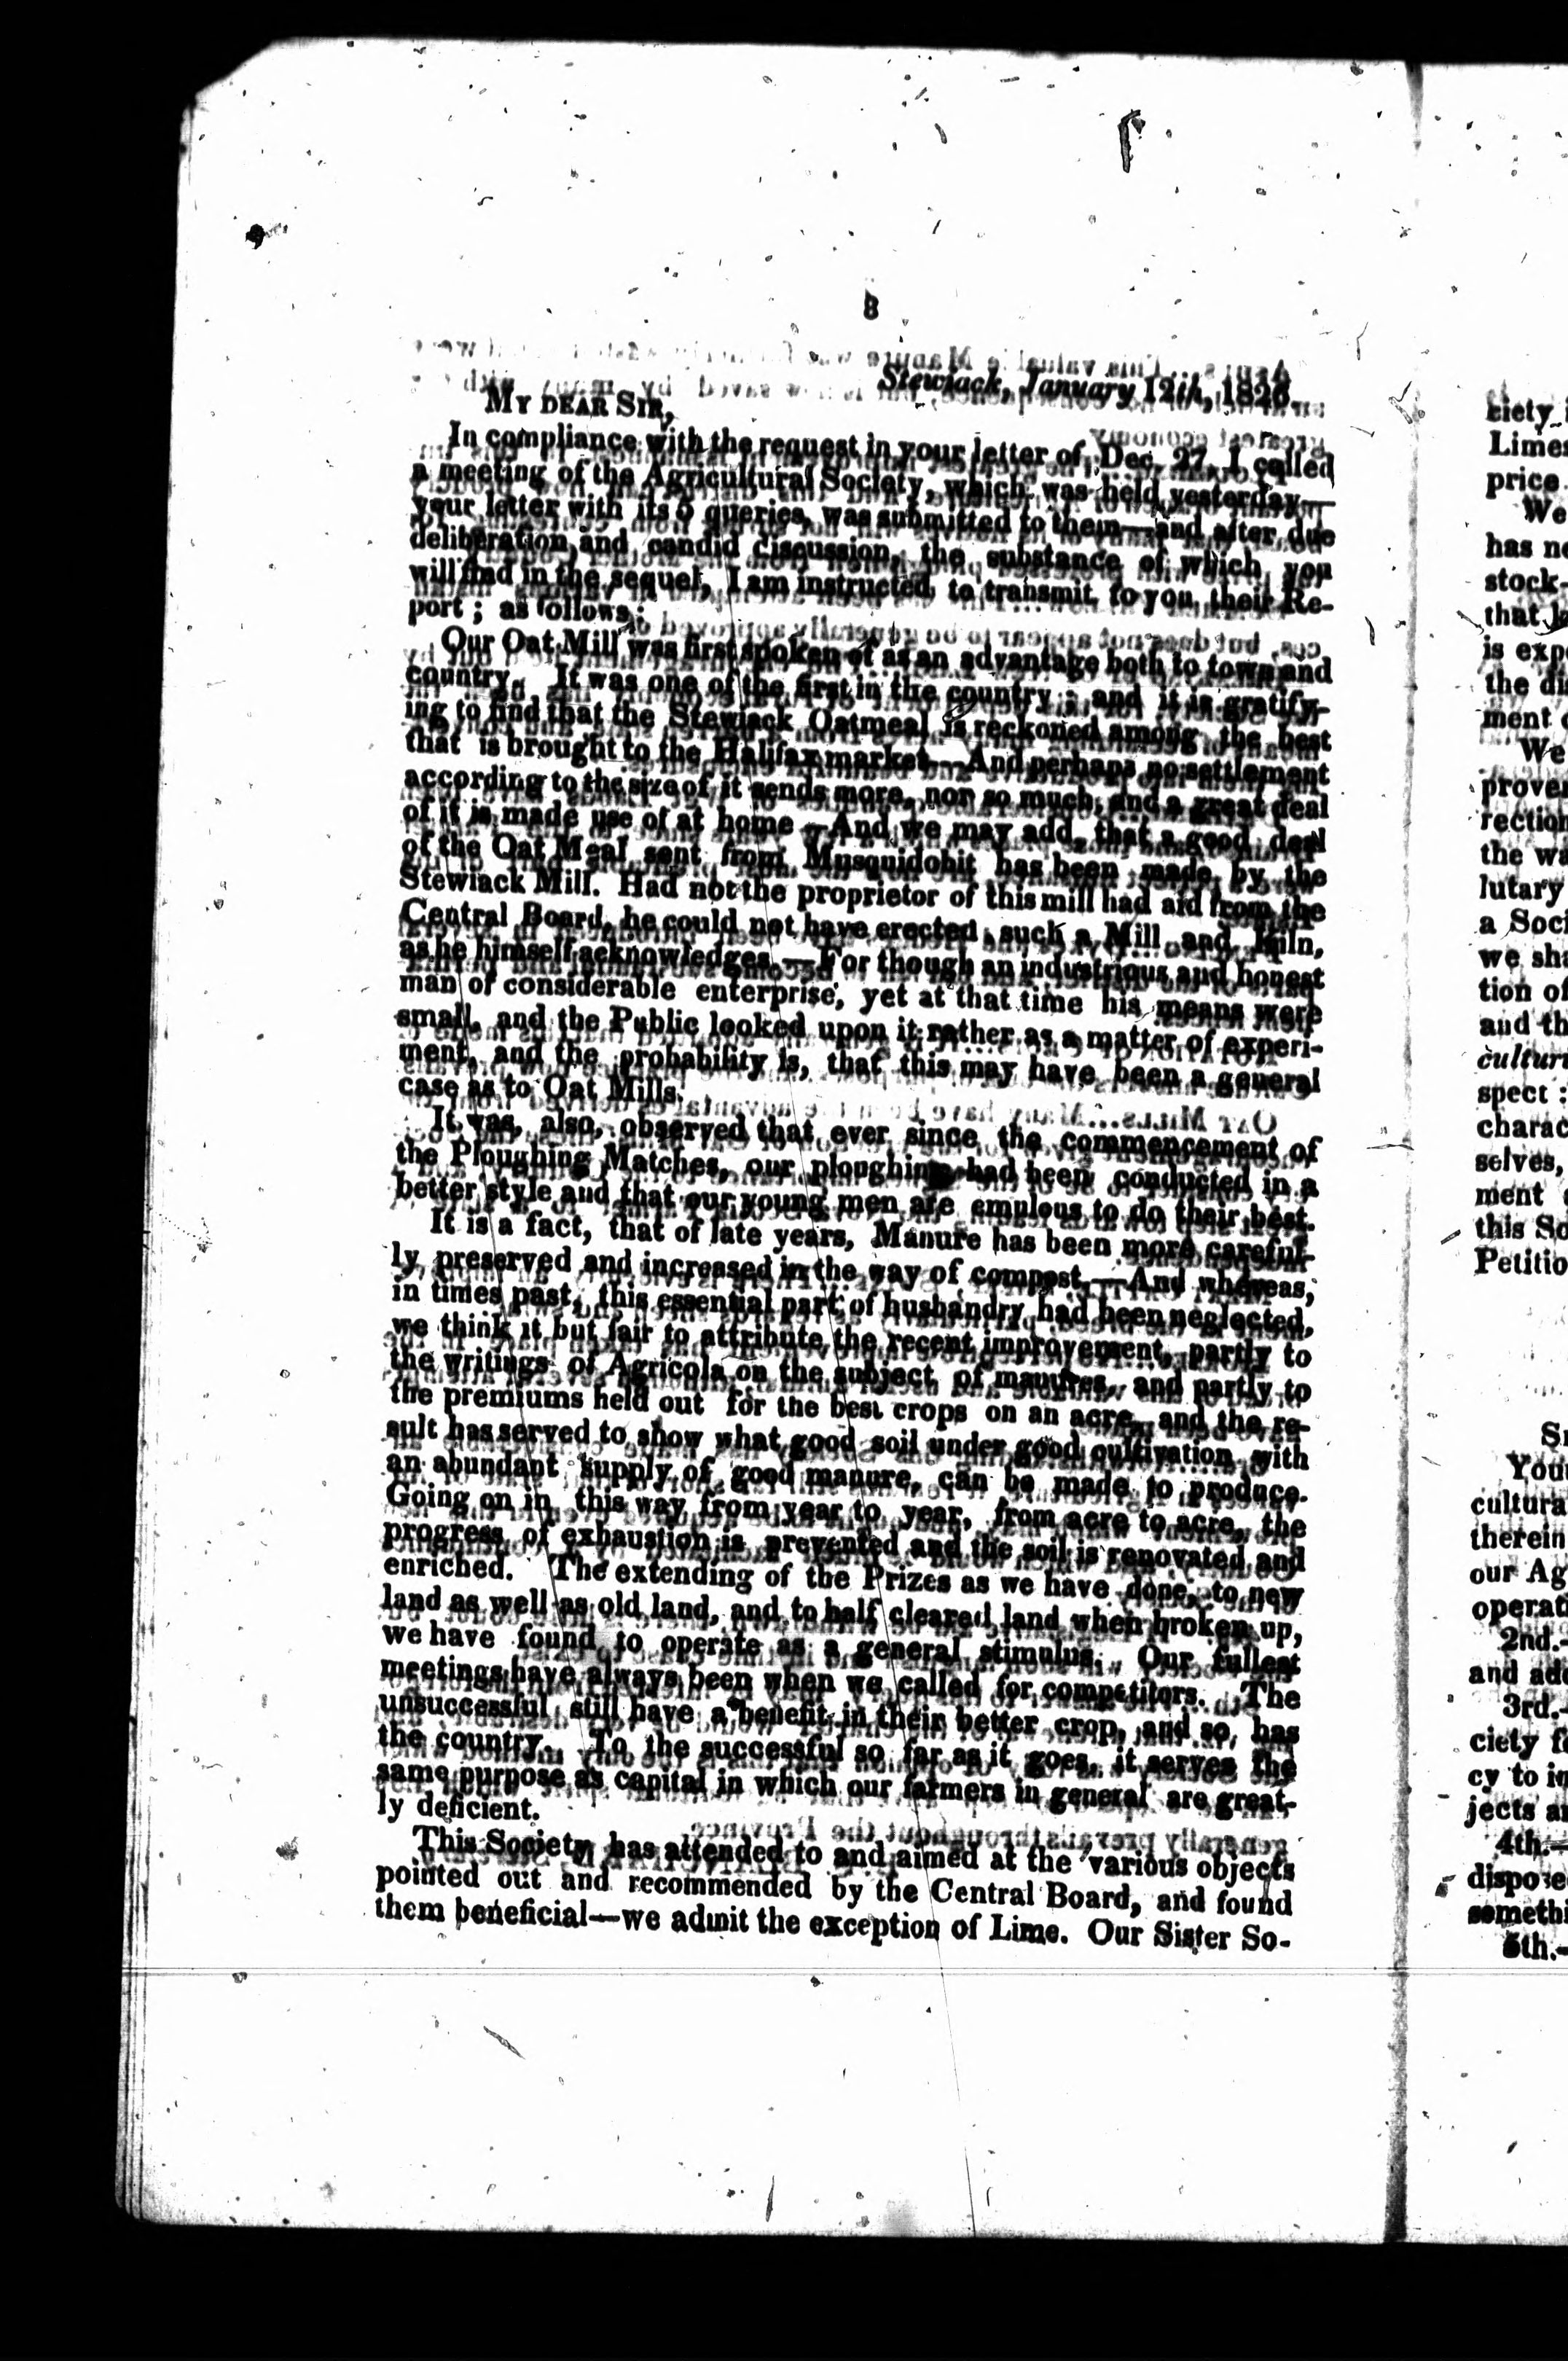 8
Stewiack, January 12th, 1826.
MY DEAR SIR,
In compliance with the request in your letter of Dec. 27, I called
a meeting of the Agricultural Society, which was held yesterday—
your letter with its 5 queries, was submitted to them—and after due
deliberation and candid discussion, the substance of which you
will find in the sequel, I am instructed, to transmit to you their Re-
port; as follows:
Our Oat Mill was first spoken of as an advantage both to town and
country. It was one of the first in the country; and it is gratify-
ing to find that the Stewiack Oatmeal is reckoned among the best
that is brought to the Halifax market—And perhaps no settlement
according to the size of it sends more, nor so much; and a great deal
of it is made use of at home—And we may add, that a good deal
of the Oat Meal sent from Musquidobit has been made by the
Stewiack Mill. Had not the proprietor of this mill had aid from the
Central Board, he could not have erected such a Mill and Kiln,
as he himself acknowledges.—For though an industrious and honest
man of considerable enterprise, yet at that time his means were
small, and the Public looked upon it rather as a matter of experi-
ment, and the probability is, that this may have been a general
case as to Oat Mills.
It was, also, observed that ever since the commencement of
the Ploughing Matches, our ploughing had been conducted in a
better style and that our young men are emulous to do their best.
It is a fact, that of late years, Manure has been more careful-
ly preserved and increased in the way of compost.—And whereas,
in times past, this essential part of husbandry had been neglected,
we think it but fair to attribute the recent improvement, partly to
the writings of Agricola on the subject of manures, and partly to
the premiums held out for the best crops on an acre, and the re-
sult has served to show what good soil under good cultivation with
an abundant supply of good manure, can be made to produce.
Going on in this way from year to year, from acre to acre, the
progress of exhaustion is prevented and the soil is renovated and
enriched. The extending of the Prizes as we have done, to new
land as well as old land, and to half cleared land when broken up,
we have found to operate as a general stimulus. Our fullest
meetings have always been when we called for competitors. The
unsuccessful still have a benefit in their better crop, and so has
the country. To the successful so far as it goes, it serves the
same purpose as capital in which our farmers in general are great-
ly deficient.
This Society has attended to and aimed at the various objects
pointed out and recommended by the Central Board, and found
them beneficial—we admit the exception of Lime. Our Sister So-
ciety
Limes
price.
We
has
stock-
that
is
the
ment
We
rection
the
lutary
a
we
tion of
and
spect:
selves,
ment
this
Your
therein
our
2nd.
and
3rd.
ciety
cy to
4th.
5th.